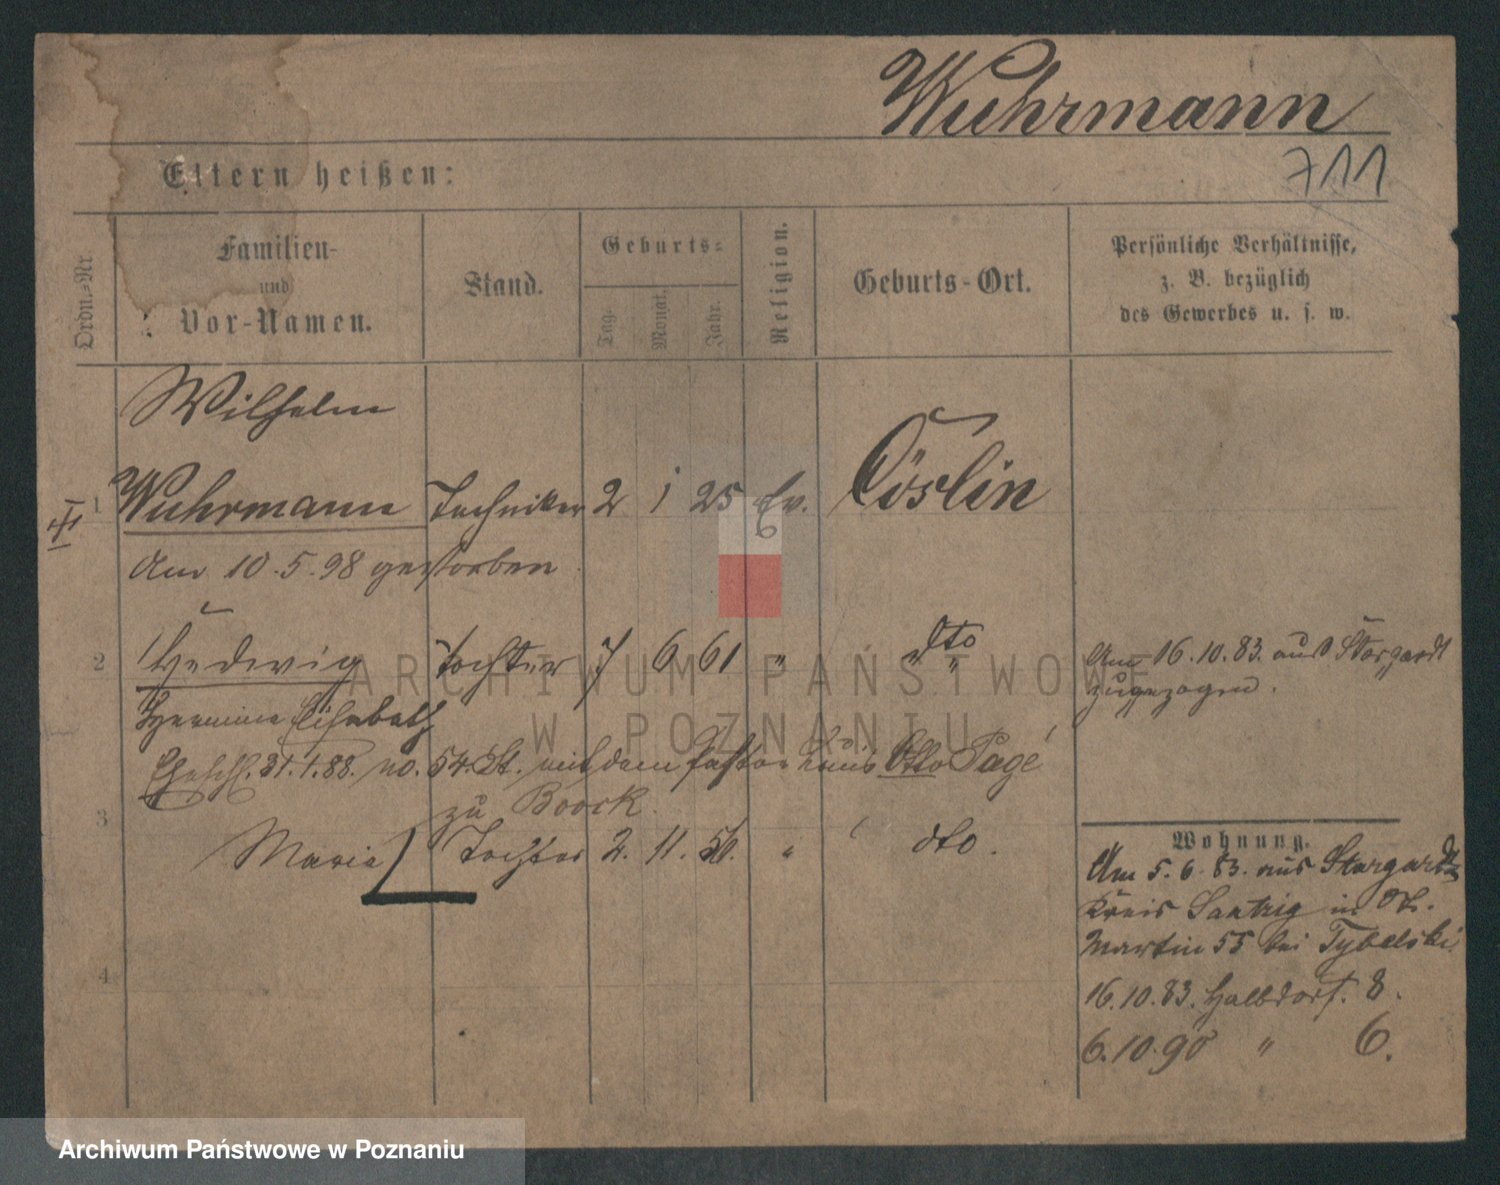 Wuhrmann
711
Eltern heißen:
Ordn.=Nr.
Familien-
und
Vor-Namen.
Stand.
Geburts=
Tag.
Monat.
Jahr.
Religion.
Geburts-Ort.
Persönliche Verhältnisse,
z. B. bezüglich
des Gewerbes u. s. w.
Wilhelm
1 Wuhrmann Techniker 2 1 25 Ev. Cöslin
Am 10.5.98 gestorben
2 Hedwig Tochter 7 6 61 " dto
Hermine Elisabeth
Ehschl. 31.1.88. no. 54. St. mit dem Pastor Luis Otto Pagé
zu Boock.
3 Maria Tochter 2. 11. 56. " dto.
4
Am 16.10.83. aus Stargardt
zugezogen.
Wohnung.
Am 5.6.83. aus Stargardt
Kreis Saatzig in
Martin 55 bei Tybelski
16.10.83. Halbdorf. 8.
6.10.90 " 6.
ARCHIWUM PAŃSTWOWE
W POZNANIU
Archiwum Państwowe w Poznaniu